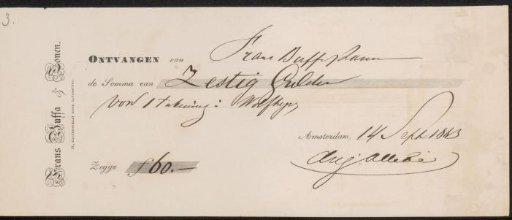 3.
Frans Buffa & Zonen.
ONTVANGEN van Frans Buffa & Zonen
de Somma van Zestig Gulden
voor 1 Tekening:
Amsterdam, 14 Sept 1863
Zegge ƒ 60.—
Aug. Allebé